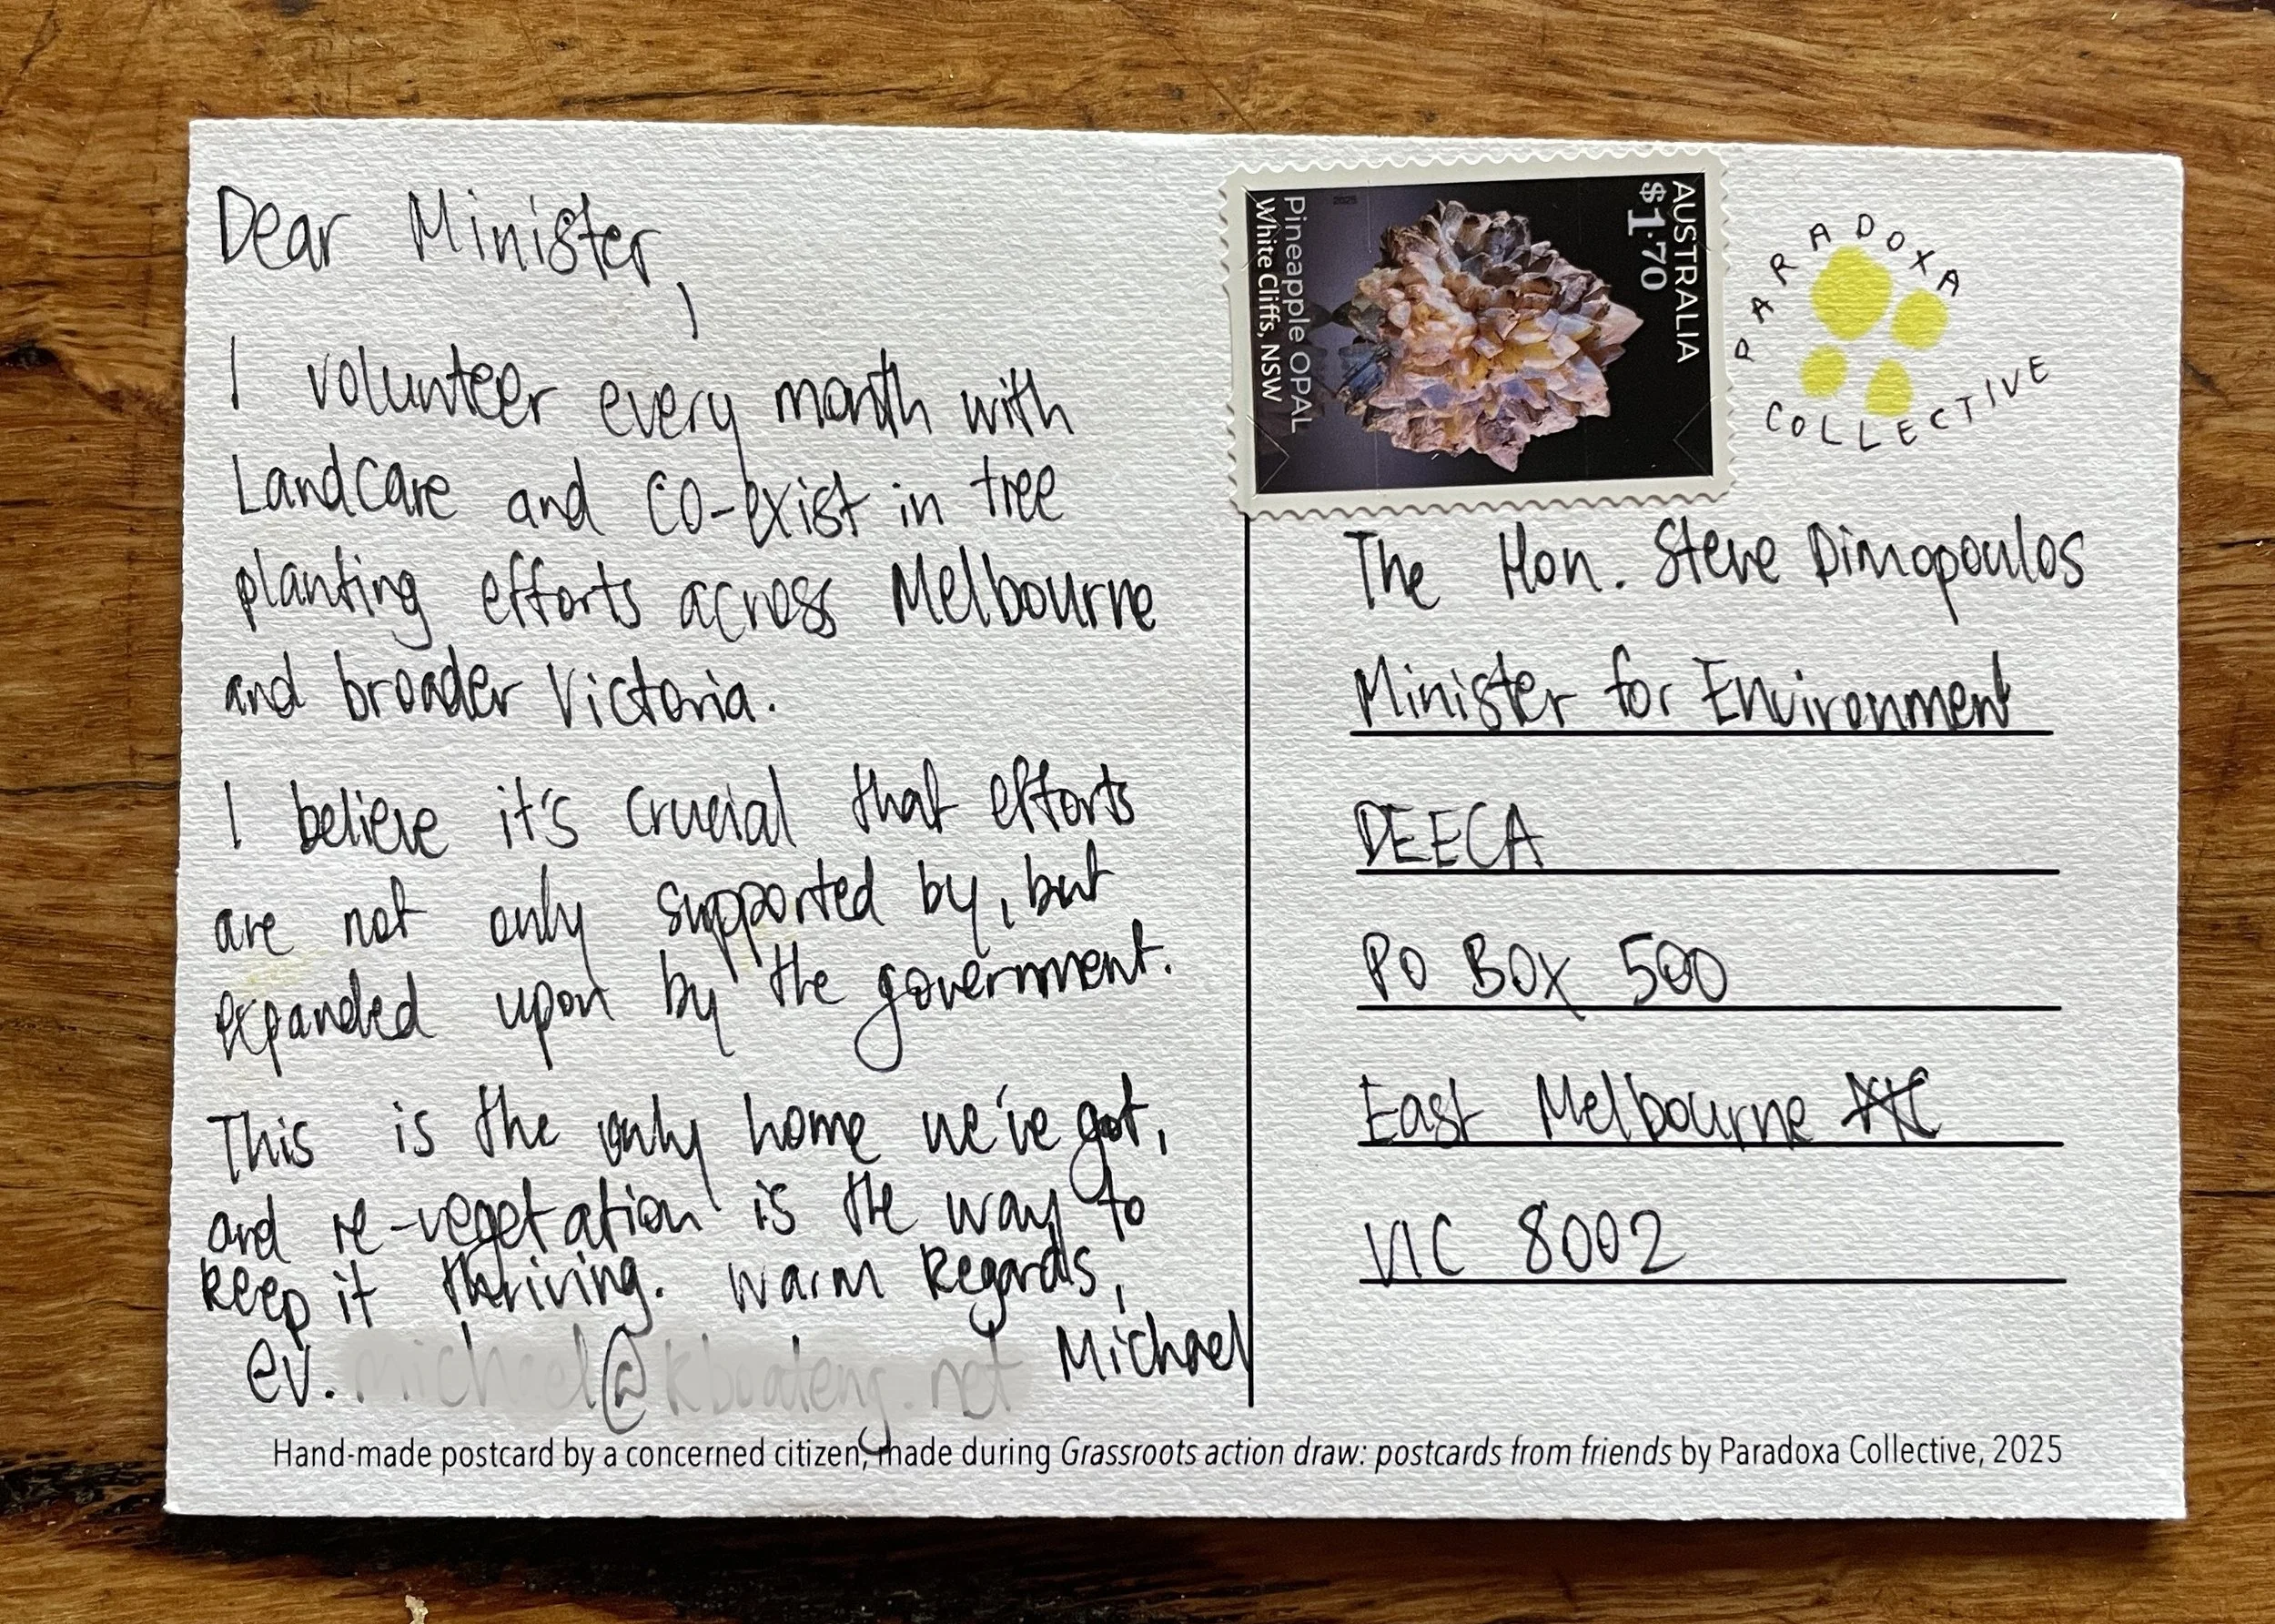 Dear Minister,
I volunteer every month with
Landcare and CO-exist in tree
planting efforts across Melbourne
and broader Victoria.
I believe it's crucial that efforts
are not only supported by, but
expanded upon by the government.
This is the only home we've got,
and re-vegetation is the way to
keep it thriving. Warm Regards,
ev. Michael
AUSTRALIA
$1.70
Pineapple OPAL
White Cliffs, NSW
2025
PARADOXA
COLLECTIVE
The Hon. Steve Dimopoulos
Minister for Environment
DEECA
PO BOX 500
East Melbourne
VIC 8002
Hand-made postcard by a concerned citizen, made during Grassroots action draw: postcards from friends by Paradoxa Collective, 2025